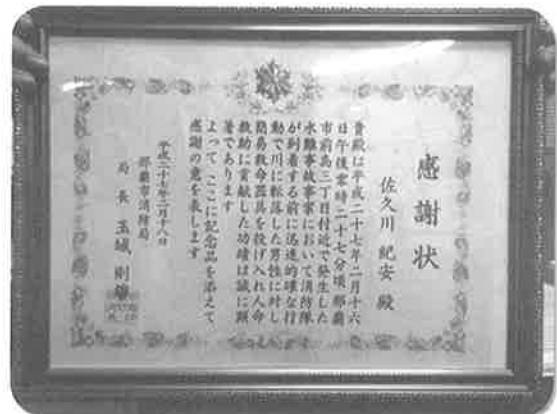 感謝状
佐久川 紀安 殿
貴殿は平成二十七年二月十六
日午後零時二十七分頃那覇
市前島三丁目付近で発生した
水難事故事案において消防隊
が到着する前に迅速的確な行
動で川に転落した男性に対し
簡易救命器具を投げ入れ人命
救助に貢献した功績は誠に顕
著であります
よって ここに記念品を添えて
感謝の意を表します
平成二十七年二月十八日
那覇市消防局
局長 玉城 則雄